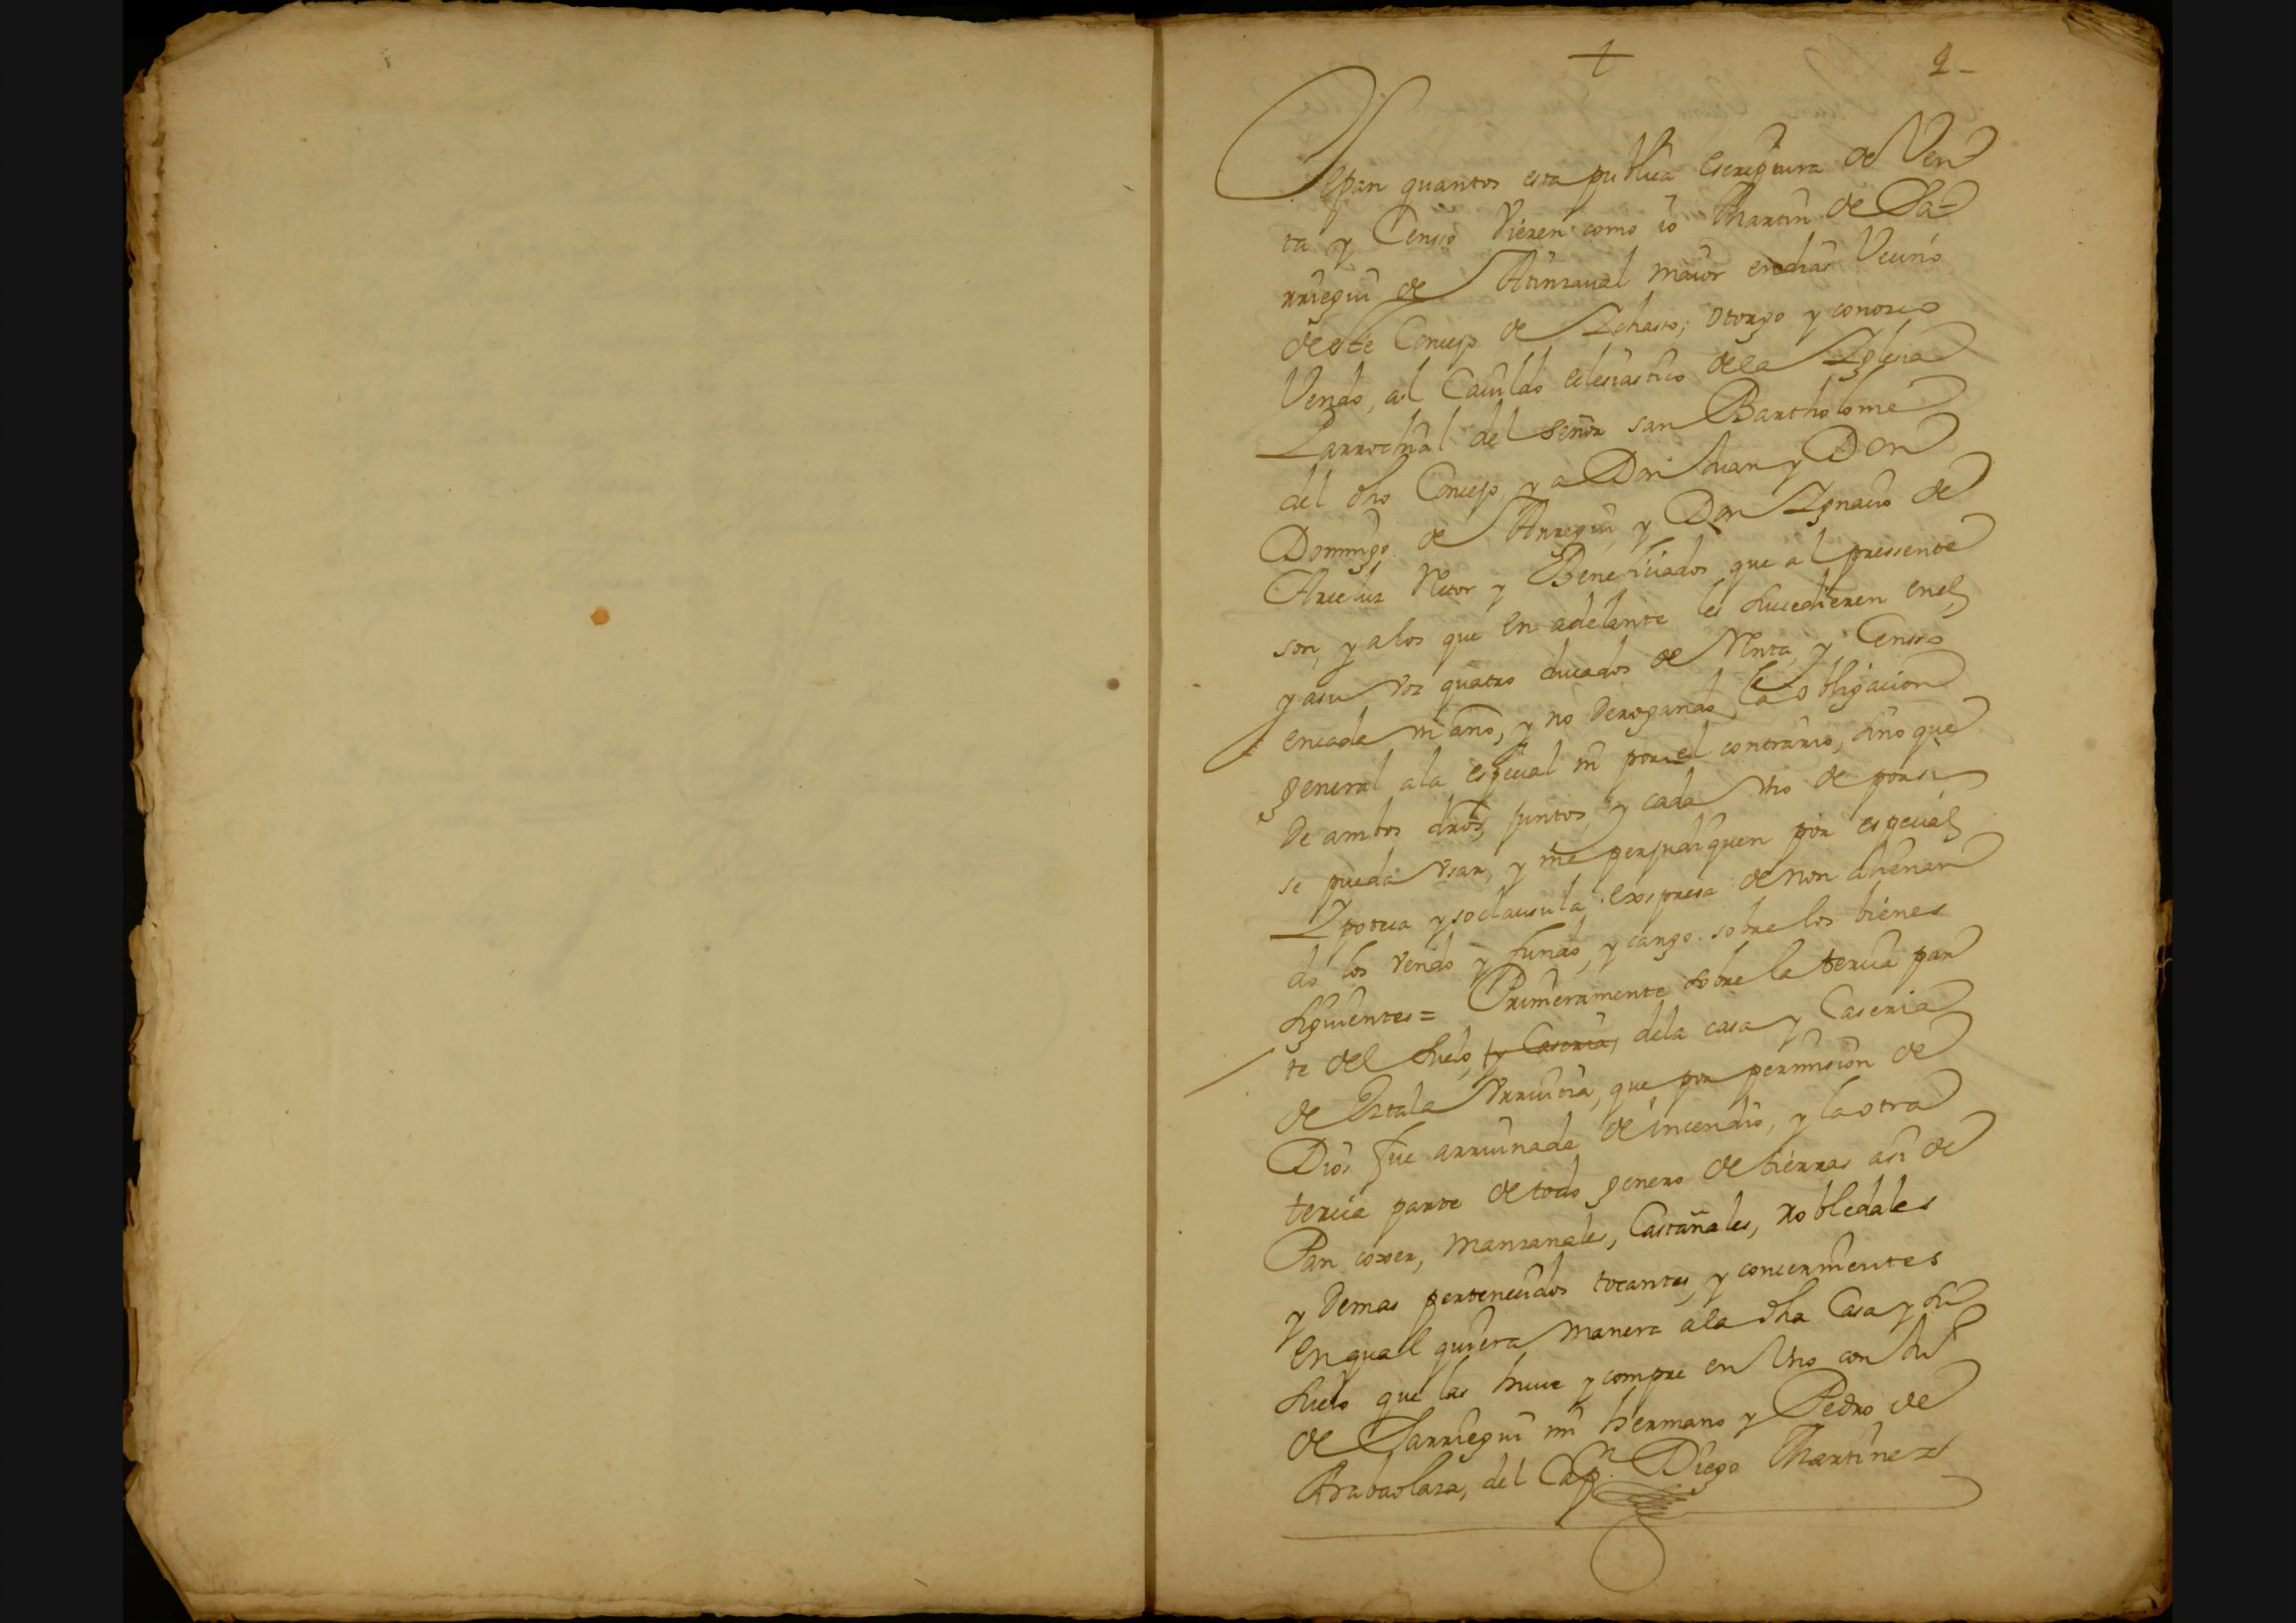 +
2-
Sepan quantos esta publica escriptura de Ven
ta y Censso vieren como io Martin de Sa-
rriegui de Atinzaual maior en dias Vecino
deste Concejo de Ichaso; otorgo y conozco
Vendo, al Cauildo eclesiastico de la Iglesia
Parrochial del señor san Bartholome
del dho Concejo, y a Don Juan y Don
Domingo de Arregui, y Don Ignacio de
Arceluz Retor y Beneficiados que al pressente
son, y alos que en adelante les sucedieren enel,
y asu voz quatro ducados de Renta, y Censso
encada vn año, y no derogando la obligacion
general ala especial ni por el contrario, sino que
de ambos dros, juntos, y cada vno de por si
se pueda vsar, y me perjudiquen por especial
Ipoteca y so clausula expresa de non alienan
do los vendo y fundo, y cargo sobre los bienes
siguientes= Primeramente sobre la tercia par
te del suelo, y Caseria, dela casa y Caseria
de Iztala Vrruitia, que por permission de
Dios fue arruinada de incendio, y la otra
tercia parte de todo genero de tierras asi de
Pan coxer, manzanales, Castañales, robledales
y demas pertenecidos tocantes, y concernientes
en qual quiera manera ala dha Casa y su
suelo que las huue y compre en Vno con
de Sarriegui mi hermano y Pedro de
Arabaolaza, del Capn. Diego Martinez